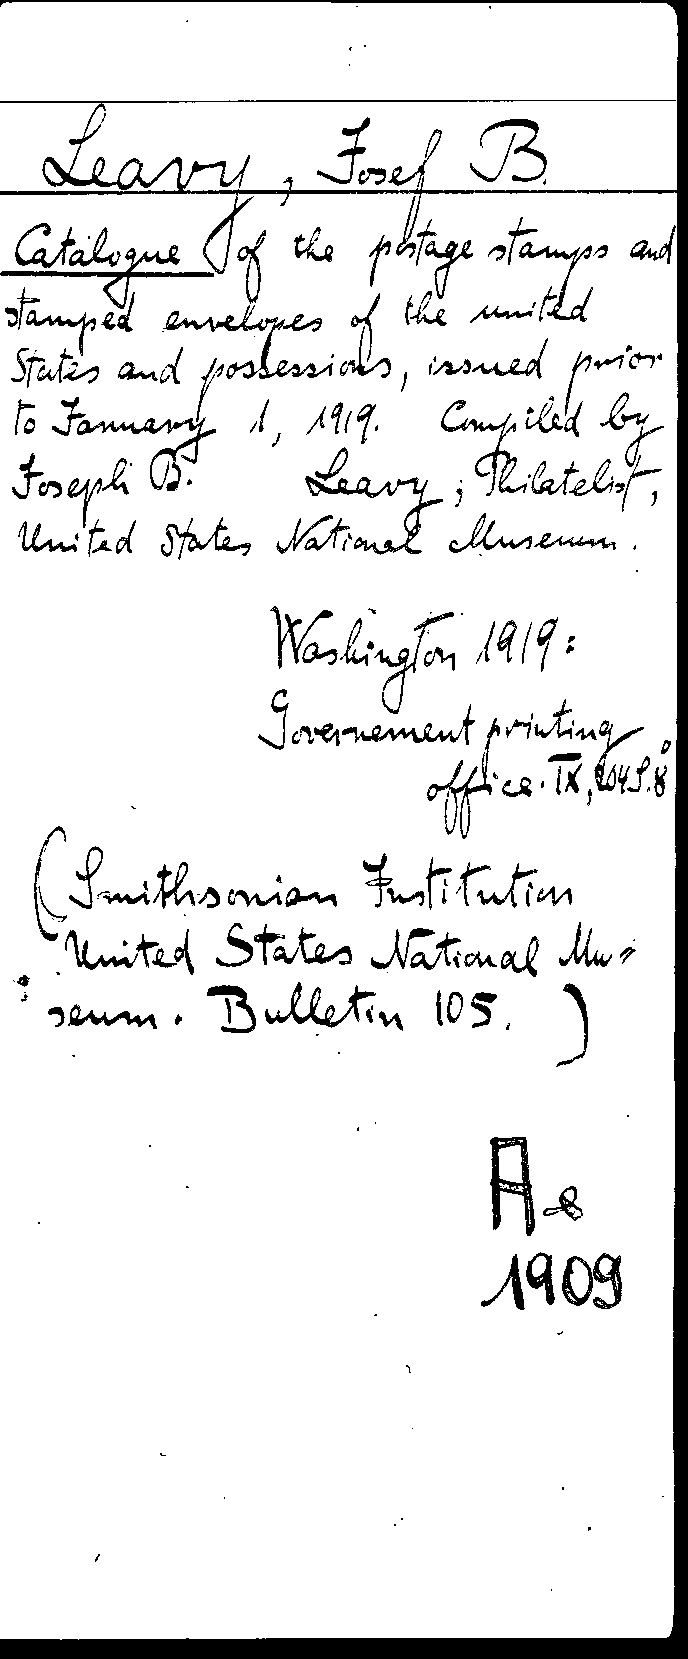 Leavy, Josef B.
Catalogue of the postage stamps and
stamped envelopes of the united
States and possessions, issued prior
to January 1, 1919. Compiled by
Joseph B. Leavy, Philatelist,
United States National Museum.
Washington 1919:
Governement printing
office. IX, 204 S. 8°
(Smithsonian Institution
United States National Mu=
seum. Bulletin 105.)
Ae
1909